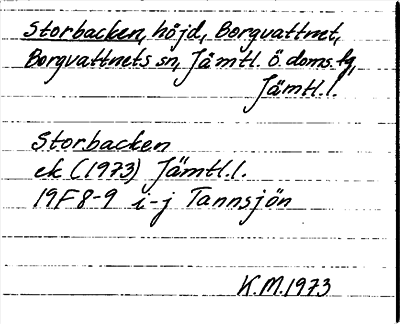 Storbacken, höjd, Borgvattnet,
Borgvattnets sn, Jämtl. ö. doms.fg,
Jämtl.l.
Storbacken
ek (1973) Jämtl.l.
19F8-9 i-j Tannsjön
K.M.1973